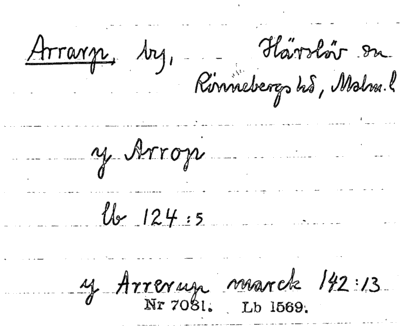 Arrarp, by, Härslöv sn
Rönnebergs hd, Malm. l
y Arrop
lb 124:5
y Arrerup marck 142:13
Nr 7081. Lb 1569.